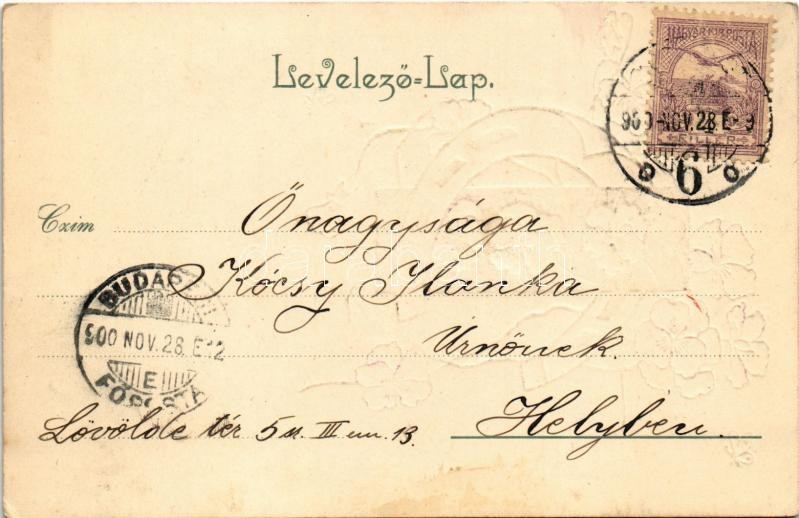 Levelező=Lap.
MAGYAR KIR. POSTA
900 NOV. 28. E 9
6
Czim
Őnagysága
Kócsy Ilonka
Úrnőnek.
BUDAPEST
900 NOV. 28. E 12
E
FŐPOSTA
Lövölde tér 5 sz. III em. 13.
Helyben.